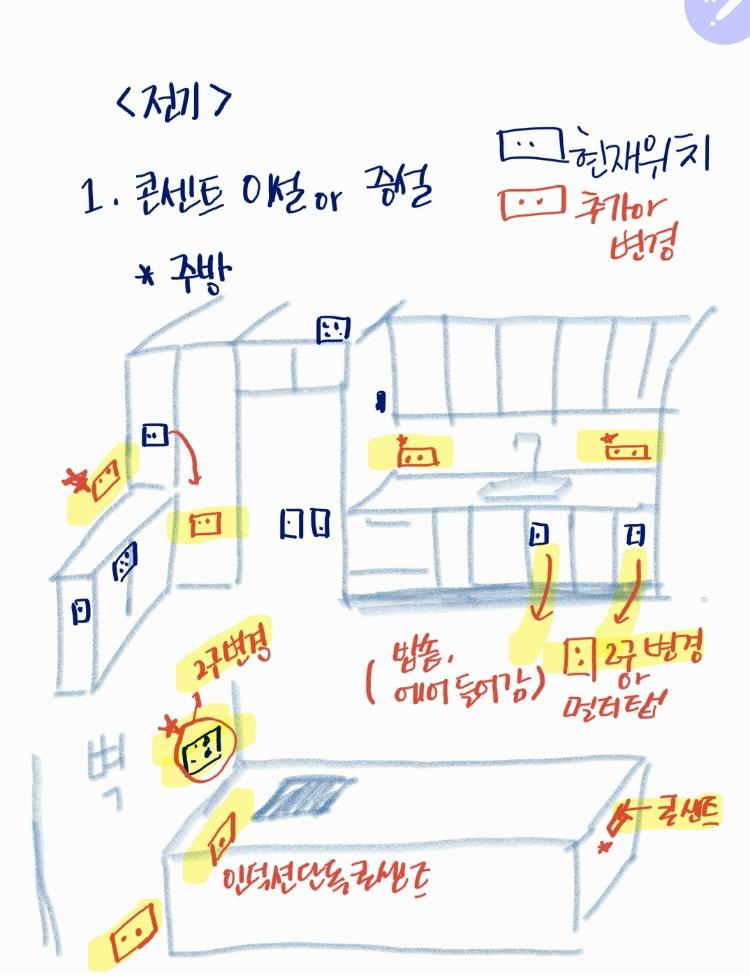 <전기>
1. 콘센트 이설 or 증설
현재위치
추가 or
변경
* 주방
2구 변경
(밥솥,
에어 들어감)
2구 변경
or
멀티탭
벽
콘센트
인덕션 단독 콘센트